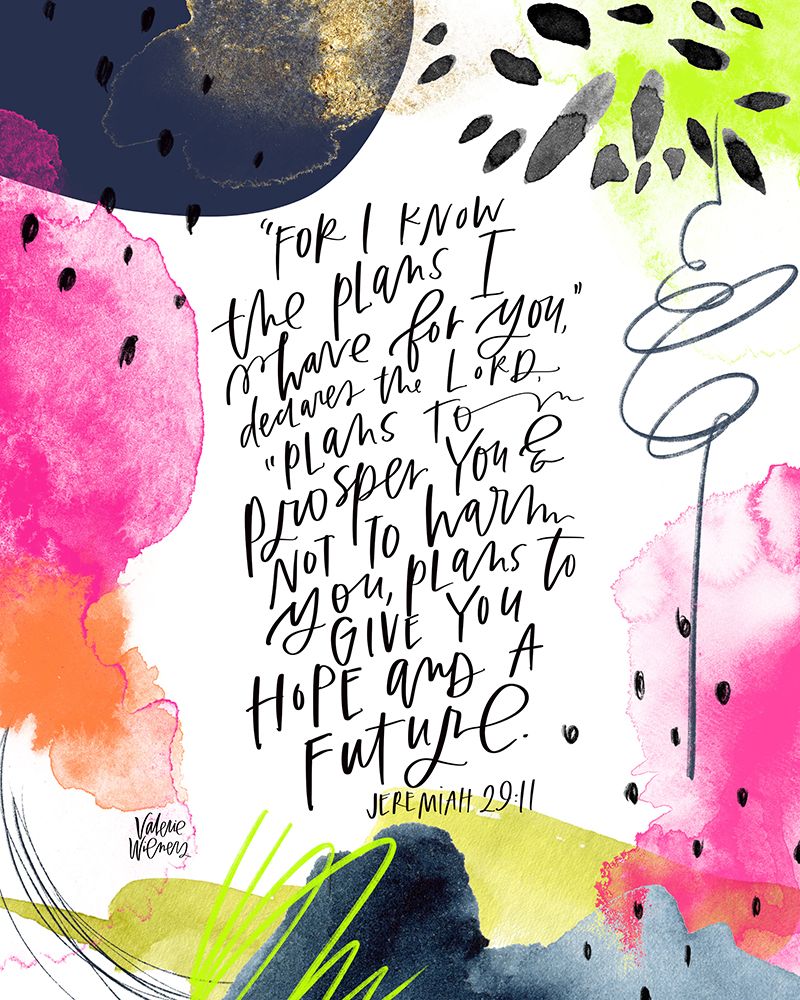 "FOR I KNOW
the plans I
have for you,"
declares the LORD,
"PLANS TO
prosper You &
NOT TO harm
you, plans to
GIVE YOU
HOPE and A
Future.
JEREMIAH 29:11
Valerie
Wieners